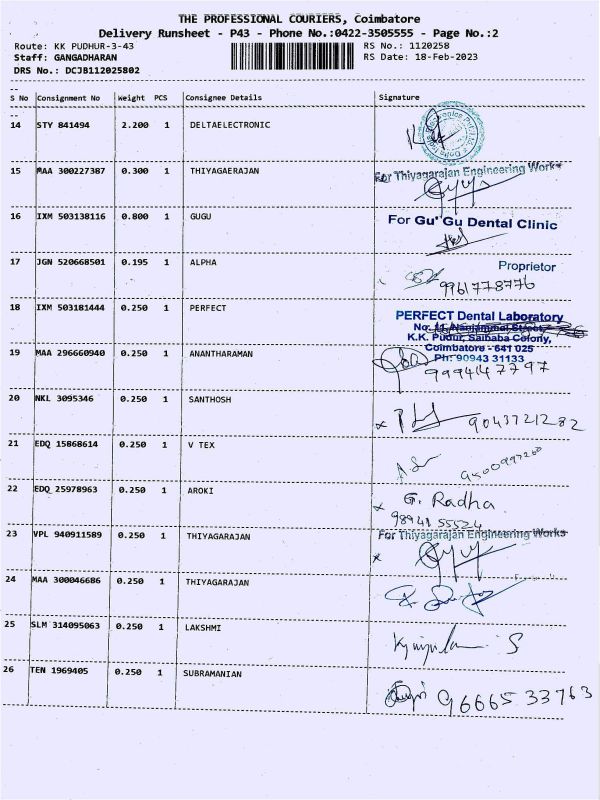 THE PROFESSIONAL COURIERS, Coimbatore
Delivery Runsheet - P43 - Phone No.:0422-3505555 - Page No.:2
Route: KK PUDHUR-3-43 RS No.: 1120258
Staff: GANGADHARAN RS Date: 18-Feb-2023
DRS No.: DCJB112025802
S No Consignment No Weight PCS Consignee Details Signature
14 STY 841494 2.200 1 DELTAELECTRONIC
15 MAA 300227387 0.300 1 THIYAGAERAJAN For Thiyagarajan Engineering Works
16 IXM 503138116 0.800 1 GUGU For Gu Gu Dental Clinic
Proprietor
17 JGN 520668501 0.195 1 ALPHA 9961778776
18 IXM 503181444 0.250 1 PERFECT PERFECT Dental Laboratory
No. 11, Nanjammal Street,
K.K. Pudur, Saibaba Colony,
Coimbatore - 641 025
Ph: 90943 31133
19 MAA 296660940 0.250 1 ANANTHARAMAN 9994147797
20 NKL 3095346 0.250 1 SANTHOSH 9043721282
21 EDQ 15868614 0.250 1 V TEX
22 EDQ 25978963 0.250 1 AROKI G. Radha
98941 55524
23 VPL 940911589 0.250 1 THIYAGARAJAN For Thiyagarajan Engineering Works
24 MAA 300046686 0.250 1 THIYAGARAJAN
25 SLM 314095063 0.250 1 LAKSHMI
26 TEN 1969405 0.250 1 SUBRAMANIAN 96665 33763